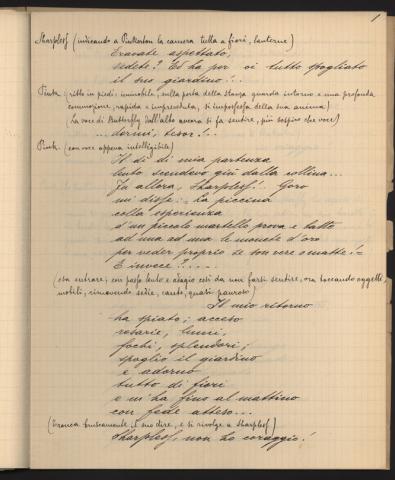 1
Sharpless (indicando a Pinkerton la camera tutta a fiori, lanterne)
Eravate aspettato,
vedete? Ed ha per voi tutto spogliato
il suo giardino!...
Pink: (ritto in piedi: immobile, sulla porta della stanza guarda intorno e una profonda
commozione, rapida e impreveduta, si impossessa della sua anima)
(la voce di Butterfly dall'alto ancora si fa sentire, più sospiro che voce)
... dormi, tesor!...
Pink: (con voce appena intelligibile)
Il dì di mia partenza
lento scendevo giù dalla collina...
Fu allora, Sharpless! Goro
mi disse: la piccina
colla esperienza
d'un piccolo martello prova e batte
ad una ad una le monete d'oro
per veder proprio se son vere o matte! =
E invece?.....
(osa entrare; con passo lento e adagio così da non farsi sentire, ora toccando oggetti,
mobili, rimovendo sedie, cauto, quasi pauroso)
Il mio ritorno
ha spiato; acceso
rosarie, lumi,
fochi, splendori;
spoglio il giardino
e adorno
tutto di fiori
e m'ha fino al mattino
con fede atteso...
(tronca bruscamente il suo dire, e si rivolge a Sharpless)
Sharpless, non ho coraggio!